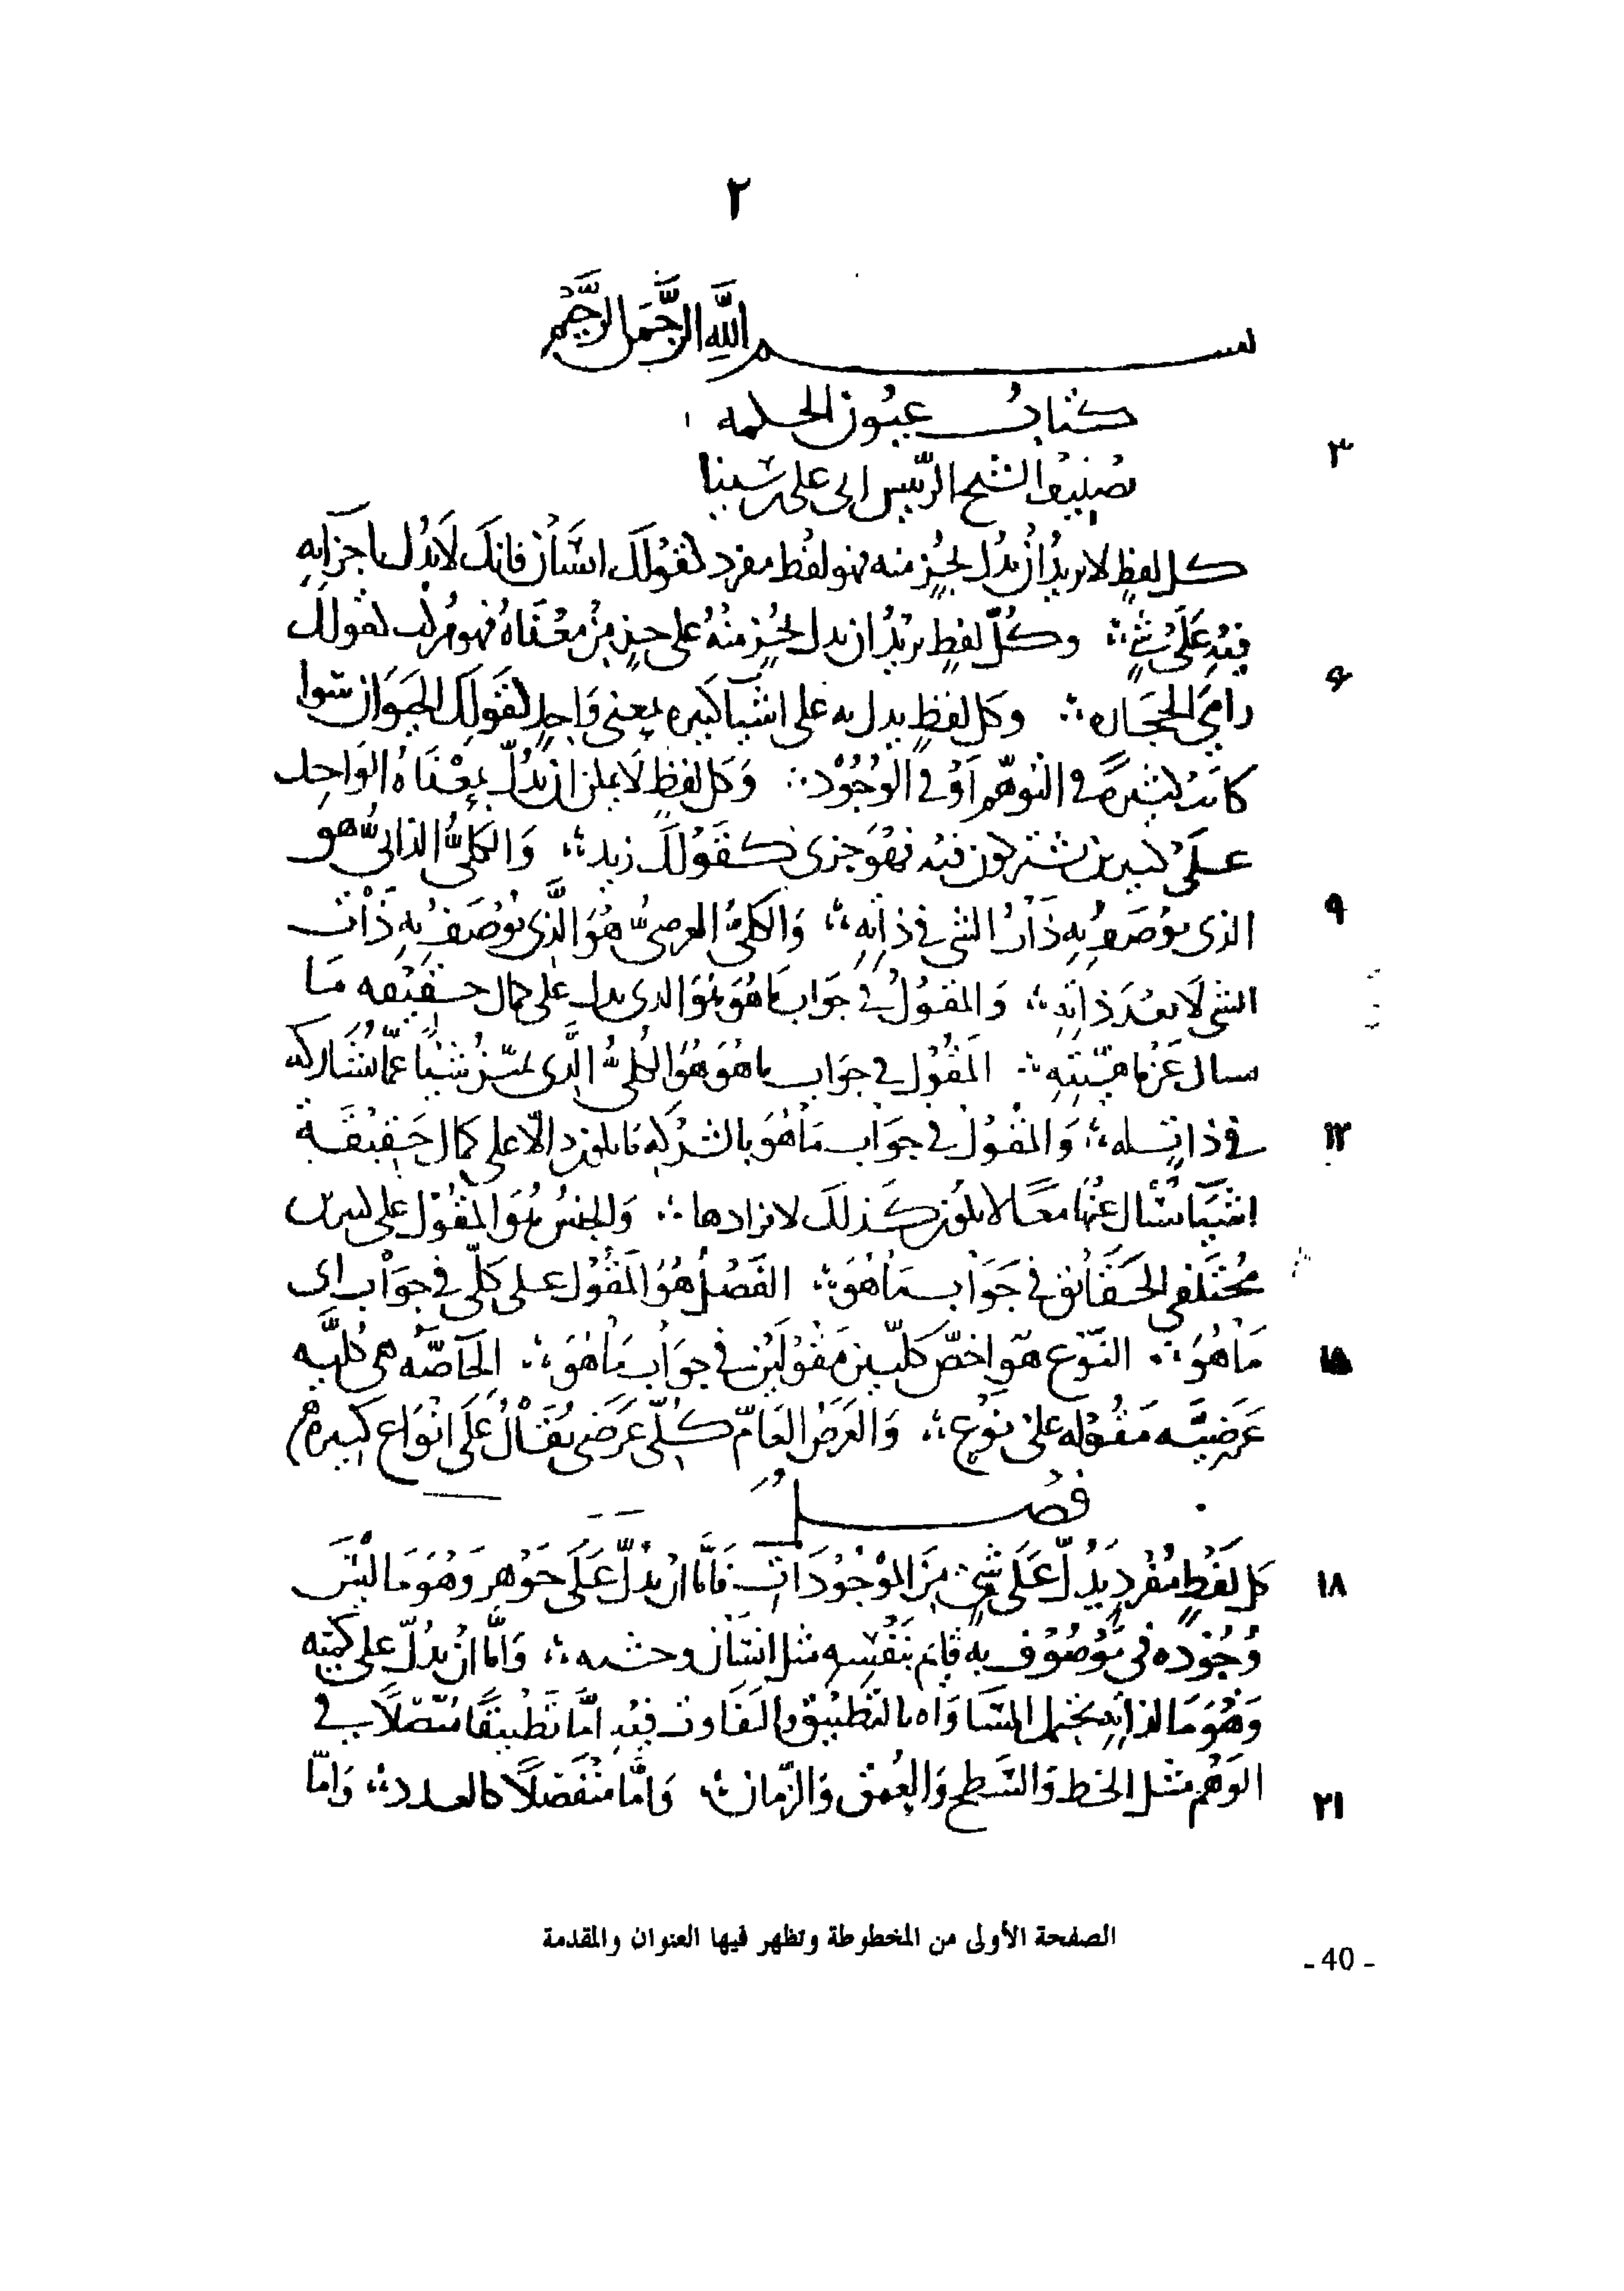 ٢
بسم الله الرحمن الرحيم
كتاب عيون الحكمه
٣
تصنيف الشيخ الرئيس ابى على بن سينا
كل لفظ لا يريد ان يدل بجزء منه فهو لفظ مفرد كقولك انسان فانك لا تدل باجزايه
فيه على شيء ∴ وكل لفظ يريد ان يدل بجزء منه على جزء من معناه فهو مركب كقولك
٦
رامي الحجاره ∴ وكل لفظ يدل به على اشيا كثيره بمعنى واحد كقولك الحيوان سوا
كانت كثيرة في التوهم أو في الوجود ∴ وكل لفظ لا يمكن ان يدل بمعناه الواحد
على كثيرين يشتركون فيه فهو جزى كقولك زيد ∴ والكلي الذاتي هو
٩
الذى يوصف به ذات الشى في ذاته ∴ والكلي العرضي هو الذي يوصف به ذات
الشى لا بعد ذاته ∴ والمقول في جواب ما هو هو الذى يدل على كمال حقيقه ما
سال عن ماهيته ∴ المقول في جواب ما هو هو الكلي الذى يميز شيئا عما يشاركه
١٢
في ذاتي له ∴ والمقول في جواب ما هو بالشركه ما يكون دالا على كمال حقيقة
اشيا يسال عنها معا لا يكون كذلك لافرادها ∴ والجنس هو المقول على كثيرين
مختلفي الحقائق في جواب ما هو ∴ الفصل هو المقول على كلي في جواب اى
١٥
ما هو ∴ النوع هو اخص كليين مقولين في جواب ما هو ∴ الخاصه هى كليه
عرضيه مقوله على نوع ∴ والعرض العام كلي عرضى يقال على انواع كثيره
فصل
١٨
كل لفظ مفرد يدل على شيء من الموجودات فاما ان يدل على جوهر وهو ما ليس
وجوده في موصوف به قايم بنفسه مثل انسان وخشبه ∴ واما ان يدل على كميه
وهو ما لذاته يحتمل المساواه بالتطبيق والتفاوت فيه اما تطبيقا متصلا في
٢١
الوهم مثل الخط والسطح والعمق والزمان ∴ واما منفصلا كالعدد ∴ واما
الصفحة الأولى من المخطوطة وتظهر فيها العنوان والمقدمة
- 40 -